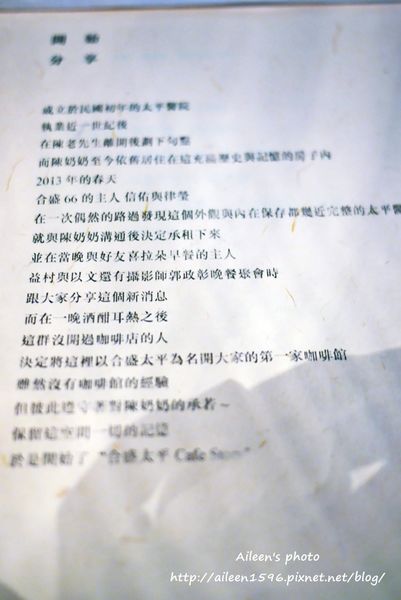 開始
分享
成立於民國初年的太平醫院
執業近一世紀後
在陳老先生離開後劃下句點
而陳奶奶至今依舊居住在這充滿歷史與記憶的房子內
2013 年的春天
合盛 66 的主人 信佑與律瑩
在一次偶然的路過發現這個外觀與內在保存都幾近完整的太平醫
就與陳奶奶溝通後決定承租下來
並在當晚與好友喜拉朵早餐的主人
益村與以文還有攝影師郭政彰晚餐聚會時
跟大家分享這個新消息
而在一晚酒酣耳熱之後
這群沒開過咖啡店的人
決定將這裡以合盛太平為名開大家的第一家咖啡館
雖然沒有咖啡館的經驗
但彼此遵守著對陳奶奶的承若～
保留這空間一切的記憶
於是開始了 "合盛太平 Cafe Story"
Aileen's photo
http://aileen1596.pixnet.net/blog/